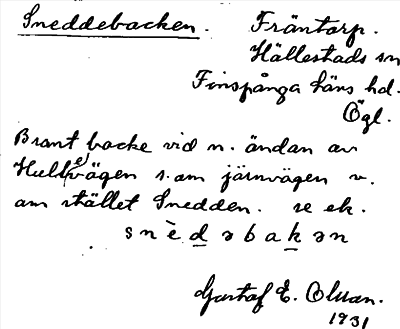 Sneddebacken. Fräntorp.
Hällestads sn
Finspånga läns hd.
Ögl.
Brant backe vid n. ändan av
vägen s. om järnvägen v.
om stället Snedden. se ek.
s n è d ə b a k ə n
Gustaf E. Olsson.
1931